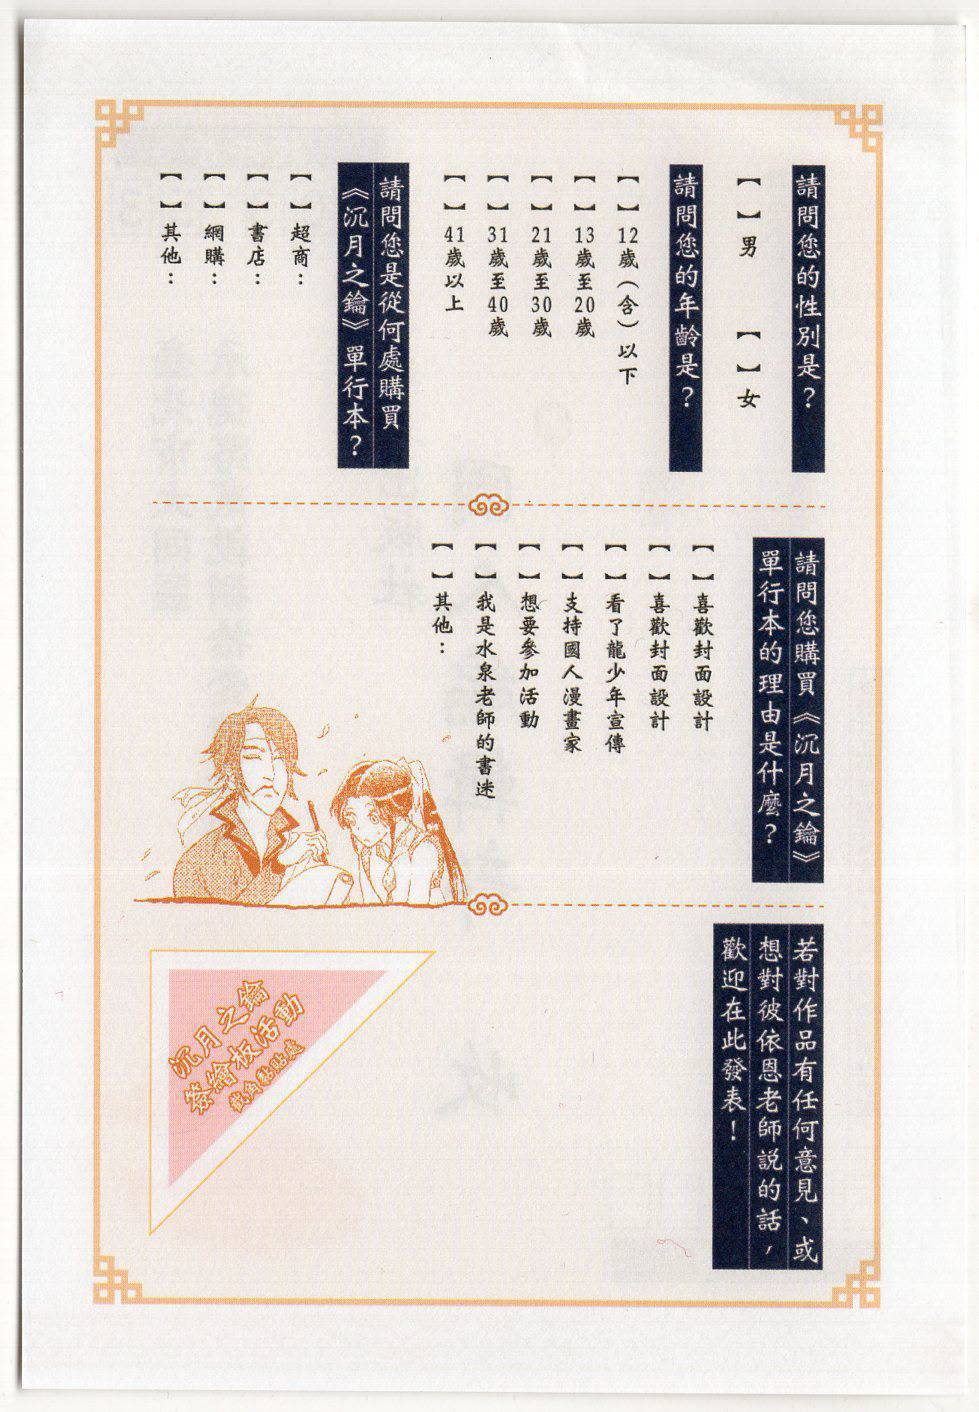 請問您的性別是？
【 】男　【 】女
請問您的年齡是？
【 】12歲（含）以下
【 】13歲至20歲
【 】21歲至30歲
【 】31歲至40歲
【 】41歲以上
請問您是從何處購買
《沉月之鑰》單行本？
【 】超商：
【 】書店：
【 】網購：
【 】其他：
請問您購買《沉月之鑰》
單行本的理由是什麼？
【 】喜歡封面設計
【 】喜歡封面設計
【 】看了龍少年宣傳
【 】支持國人漫畫家
【 】想要參加活動
【 】我是水泉老師的書迷
【 】其他：
若對作品有任何意見、或
想對彼依恩老師說的話，
歡迎在此發表！
沉月之鑰
簽繪板活動
截角黏貼處